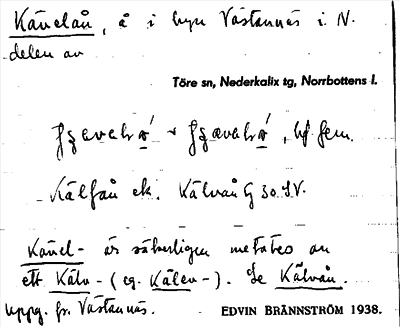 Kävelån, å i byn Västannäs i N.
delen av
Töre sn, Nederkalix tg, Norrbottens l.
bf fem.
Kälfån ek. Kälvån G 30 S.V.
Kävel- är säkerligen metates av
ett Kälv- (eg. Kälev-). Se Kälvån.
Uppg. fr. Västannäs. EDVIN BRÄNNSTRÖM 1938.